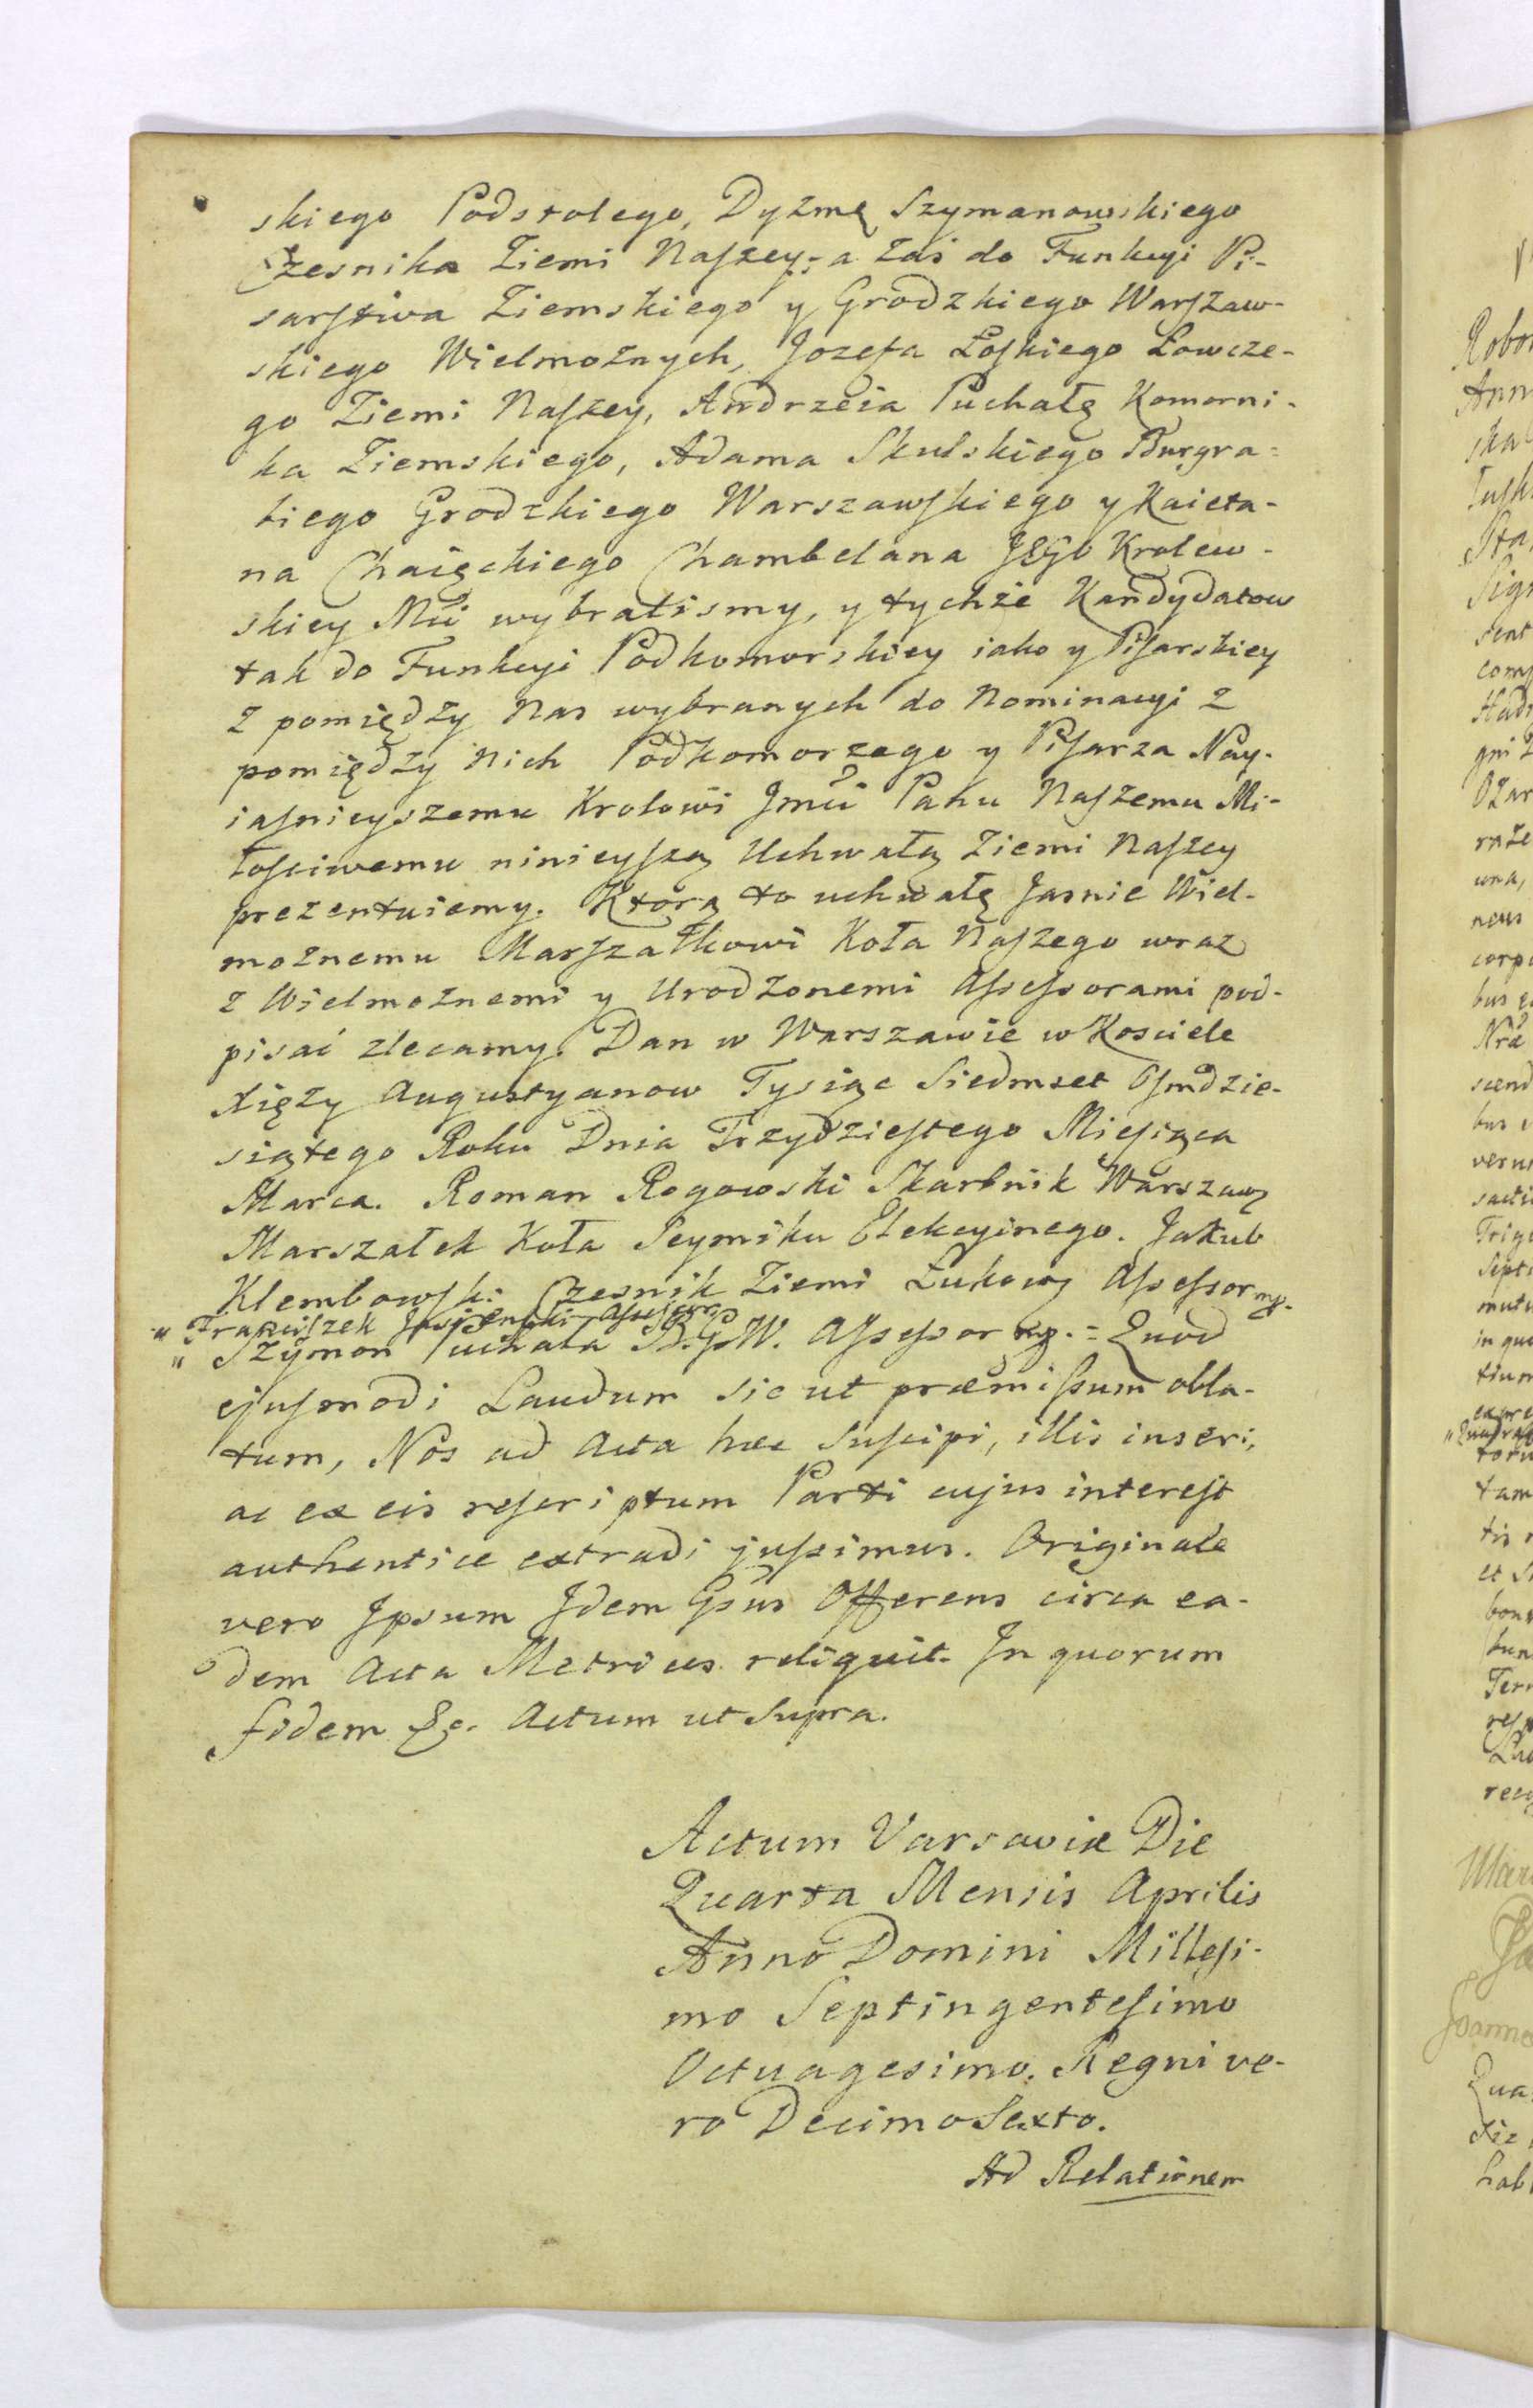 skiego Podstolego, Dyzmę Szymanowskiego
Czesnika Ziemi Naszey; a zaś do Funkcyi Pi-
sarstwa Ziemskiego y Grodzkiego Warszaw-
skiego Wielmożnych, Jozefa Łoskiego Łowcze-
go Ziemi Naszey, Andrzeia Puchałę Komorni-
ka Ziemskiego, Adama Skulskiego Burgra-
biego Grodzkiego Warszawskiego y Kaieta-
na Chaięckiego Chambelana JEGO Krolew-
skiey Mci wybralismy, y tychże Kandydatow
tak do Funkcyi Podkomorskiey iako y Pisarskiey
z pomiędzy Nas wybranych do Nominacyi z
pomiędzy Nich Podkomorzego y Pisarza Nay-
iasnieyszemu Krolowi Jmci Panu Naszemu Mi-
łosciwemu ninieyszą Uchwałą Ziemi Naszey
prezentuiemy. Ktorą to uchwałę Jasnie Wiel-
możnemu Marszałkowi Koła Naszego wraz
z Wielmożnemi y Urodzonemi Assessorami pod-
pisać zlecamy. Dan w Warszawie w Kosciele
Xięży Augustyanow Tysiąc Siedmset Osmdzie-
siątego Roku Dnia Trzydziestego Miesiąca
Marca. Roman Rogowski Skarbnik Warszaw
Marszałek Koła Seymiku Elekcyinego. Jakub
Klembowski Czesnik Ziemi Łukow Assessor mp.
" Franciszek Jasieński Assessor
" Szymon Puchała B.G.W. Assessor mp. = Quod
ejusmodi Laudum sic ut præmissum obla-
tum, Nos ad Acta hæc suscipi, illis inseri,
ac ex eis rescriptum Parti cujus interest
authentice extradi jussimus. Originale
vero Ipsum Idem Gsus Offerens circa ea-
dem Acta Metrices reliquit. In quorum
fidem &c. Actum ut Supra.
Actum Varsaviæ Die
Quarta Mensis Aprilis
Anno Domini Millesi-
mo Septingentesimo
Octuagesimo. Regni ve-
ro Decimo Sexto.
Ad Relationem